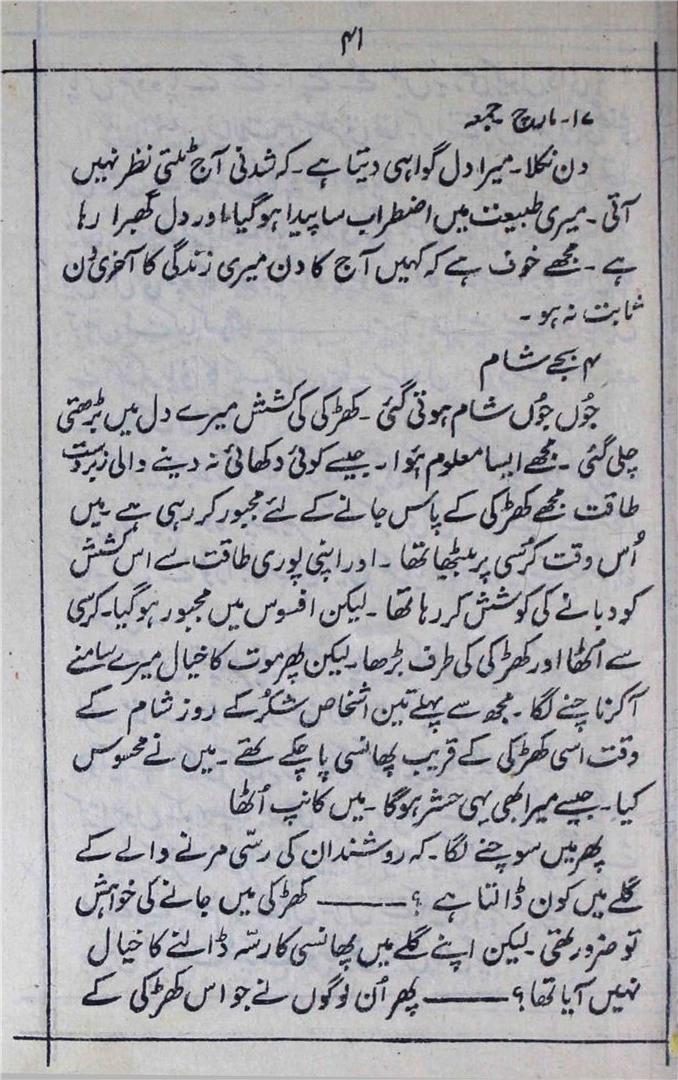 ۴۱
۱۷۔ مارچ جمعہ
دن نکلا۔ میرا دل گواہی دیتا ہے۔ کہ شدنی آج ٹلتی نظر نہیں
آتی۔ میری طبیعت میں اضطراب سا پیدا ہوگیا۔ اور دل گھبرا رہا
ہے۔ مجھے خوف ہے کہ کہیں آج کا دن میری زندگی کا آخری دن
ثابت نہ ہو۔
۴ بجے شام
جُوں جُوں شام ہوتی گئی۔ کھڑکی کی کشش میرے دل میں بڑھتی
چلی گئی۔ مجھے ایسا معلوم ہُوا۔ جیسے کوئی دکھائی نہ دینے والی زبردست
طاقت مجھے کھڑکی کے پاس جانے کے لئے مجبور کر رہی ہے۔ میں
اُس وقت کرُسی پر بیٹھا تھا۔ اور اپنی پوری طاقت سے اس کشش
کو دبانے کی کوشش کر رہا تھا۔ لیکن افسوس میں مجبور ہوگیا۔ کرسی
سے اُٹھا اور کھڑکی کی طرف بڑھا۔ لیکن پھر موت کا خیال میرے سامنے
آکر ناچنے لگا۔ مجھ سے پہلے تین اشخاص شکرُ کے روز شام کے
وقت اسی کھڑکی کے قریب پھانسی پا چکے تھے۔ میں نے محسوس
کیا۔ جیسے میرا بھی یہی حشر ہوگا۔ میں کانپ اُٹھا
پھر میں سوچنے لگا۔ کہ روشندان کی رسّی مرنے والے کے
گلے میں کون ڈالتا ہے ؟ ——— کھڑکی میں جانے کی خواہش
تو ضرور تھی۔ لیکن اپنے گلے میں پھانسی کا رسّہ ڈالنے کا خیال
نہیں آیا تھا ؟ ——— پھر اُن لوگوں نے جو اس کھڑکی کے